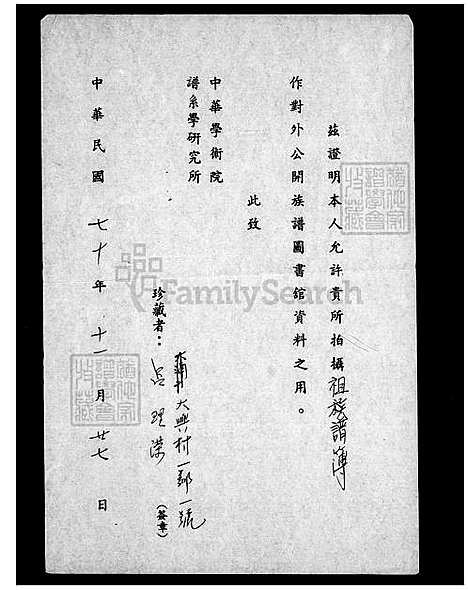 茲證明本人允許貴所拍攝祖族譜簿
作對外公開族譜圖書舘資料之用。
此致
中華學術院
譜系學研究所
大興村一鄰一號
珍藏者：呂理榮（簽章）
中華民國七十年十一月廿七日
FamilySearch